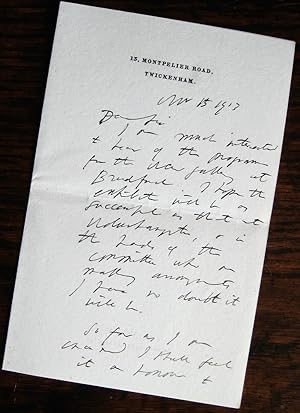 15, MONTPELIER ROAD,
TWICKENHAM.
Nov 15 1913
Dear Sir
I am much interested
to hear of the programme
for the new gallery at
Bradford. I hope the
exhibit will be as
successful as that at
Wolverhampton, & in
the hands of the
committee who are
making arrangements
I have no doubt it
will be.
So far as I am
concerned I shall feel
it an honour to